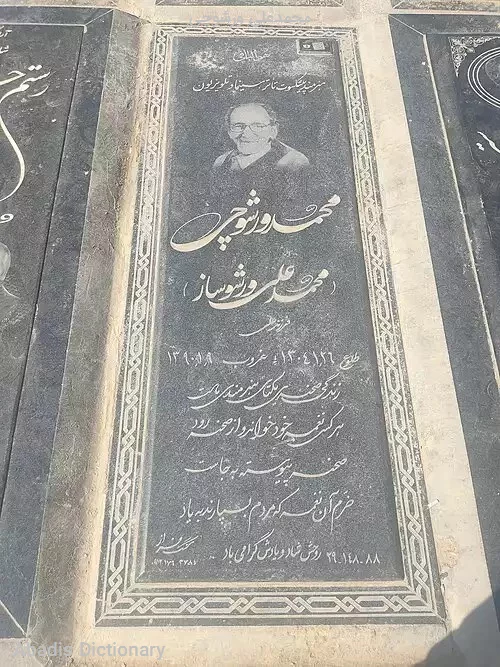 هوالباقی
هنرمند پیشکسوت تئاتر سینما و تلویزیون
محمد ورشوچی
(محمدعلی ورشوساز)
فرزند علی
طلوع ۱۳۰۴/۱/۲۶ غروب ۱۳۹۰/۱/۹
زندگی صحنه ی یکتای هنرمندی ماست
هر کسی نغمه خود خواند و از صحنه رود
صحنه پیوسته به جاست
خرم آن نغمه که مردم بسپارند به یاد
روحش شاد و یادش گرامی باد ۲۹-۱۴۸-۸۸
رستم
Abadis Dictionary